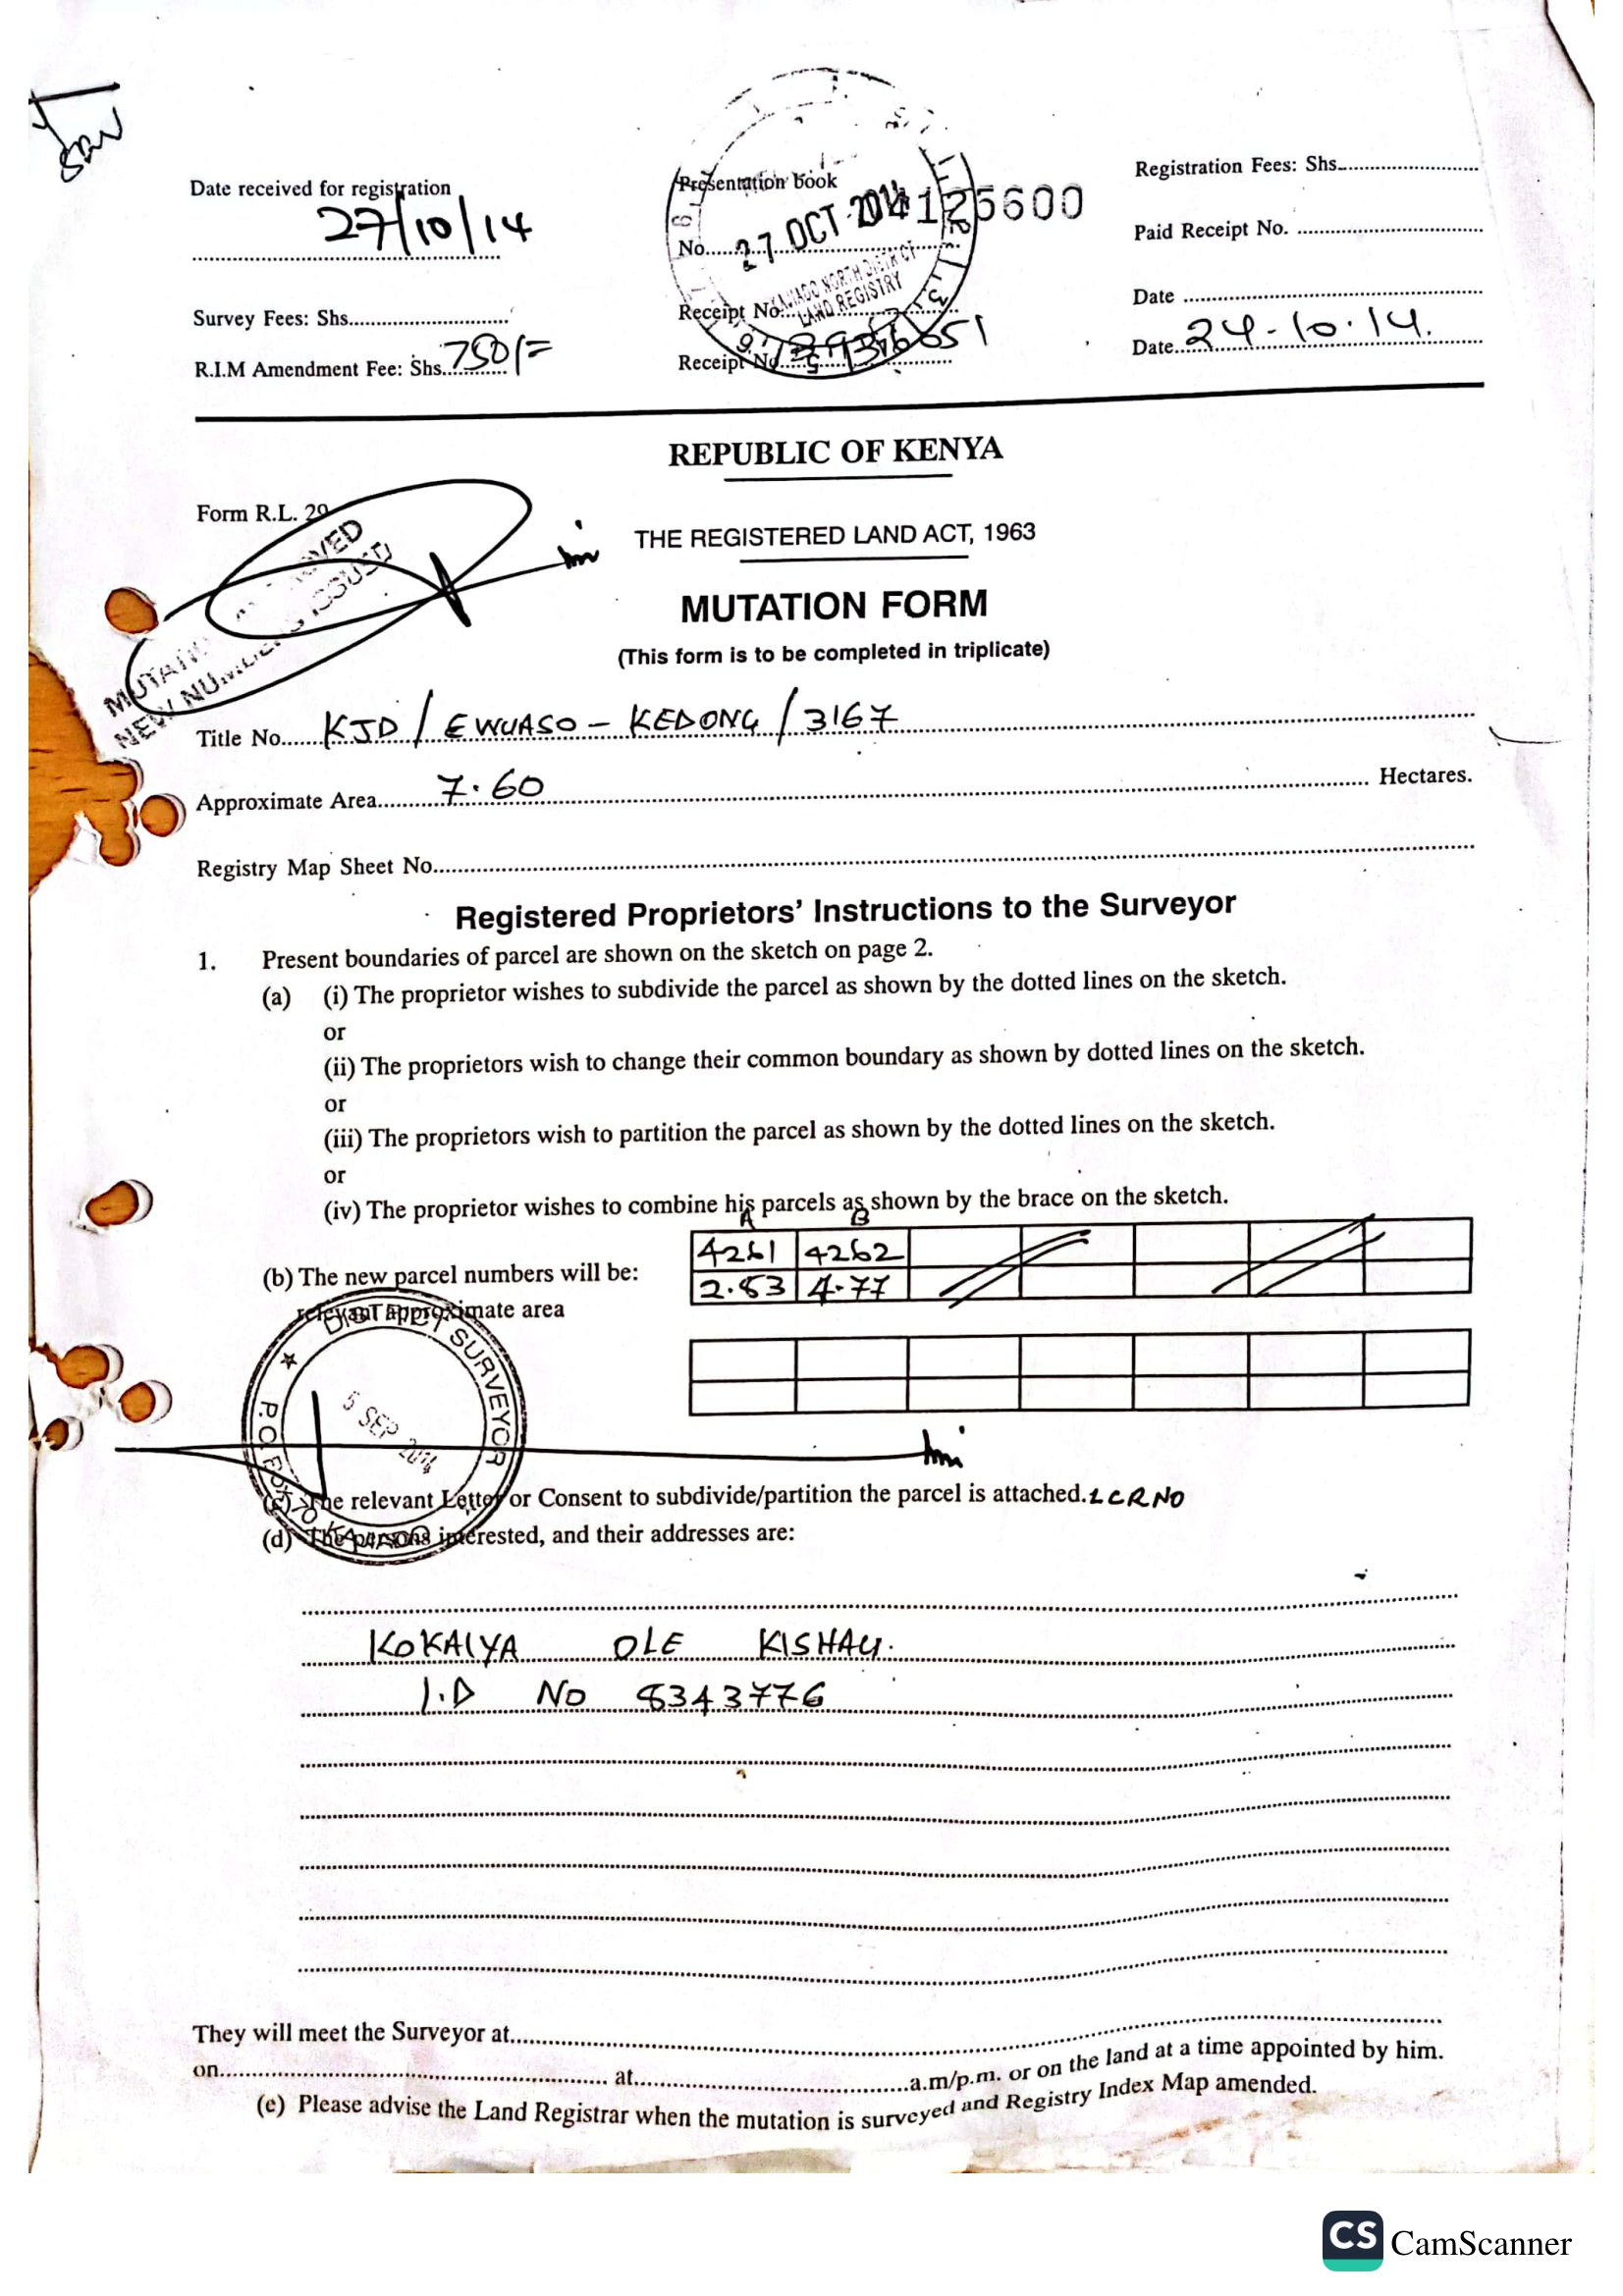 Date received for registration
27/10/14
Survey Fees: Shs
R.I.M Amendment Fee: Shs. 750/=
Presentation book
No. 27 OCT 2014 125600
KAJIADO NORTH DISTRICT
LAND REGISTRY
Receipt No.
Receipt No.
Registration Fees: Shs.
Paid Receipt No.
Date
Date 24.10.14.
REPUBLIC OF KENYA
Form R.L. 29
THE REGISTERED LAND ACT, 1963
MUTATION FORM
(This form is to be completed in triplicate)
NEW NUMBERS ISSUED
Title No. KJD / EWUASO - KEDONG / 3167
Approximate Area 7.60 Hectares.
Registry Map Sheet No.
Registered Proprietors' Instructions to the Surveyor
1. Present boundaries of parcel are shown on the sketch on page 2.
(a) (i) The proprietor wishes to subdivide the parcel as shown by the dotted lines on the sketch.
or
(ii) The proprietors wish to change their common boundary as shown by dotted lines on the sketch.
or
(iii) The proprietors wish to partition the parcel as shown by the dotted lines on the sketch.
or
(iv) The proprietor wishes to combine his parcels as shown by the brace on the sketch.
A B
4261 4262
(b) The new parcel numbers will be:
2.83 4.77
relevant approximate area
DISTRICT SURVEYOR
5 SEP 2014
P.O. BOX 70 KAJIADO
(c) The relevant Letter or Consent to subdivide/partition the parcel is attached. LCR NO
(d) The persons interested, and their addresses are:
KOKAIYA OLE KISHAU.
I.D NO 8343776
They will meet the Surveyor at
on at a.m/p.m. or on the land at a time appointed by him.
(e) Please advise the Land Registrar when the mutation is surveyed and Registry Index Map amended.
CS CamScanner